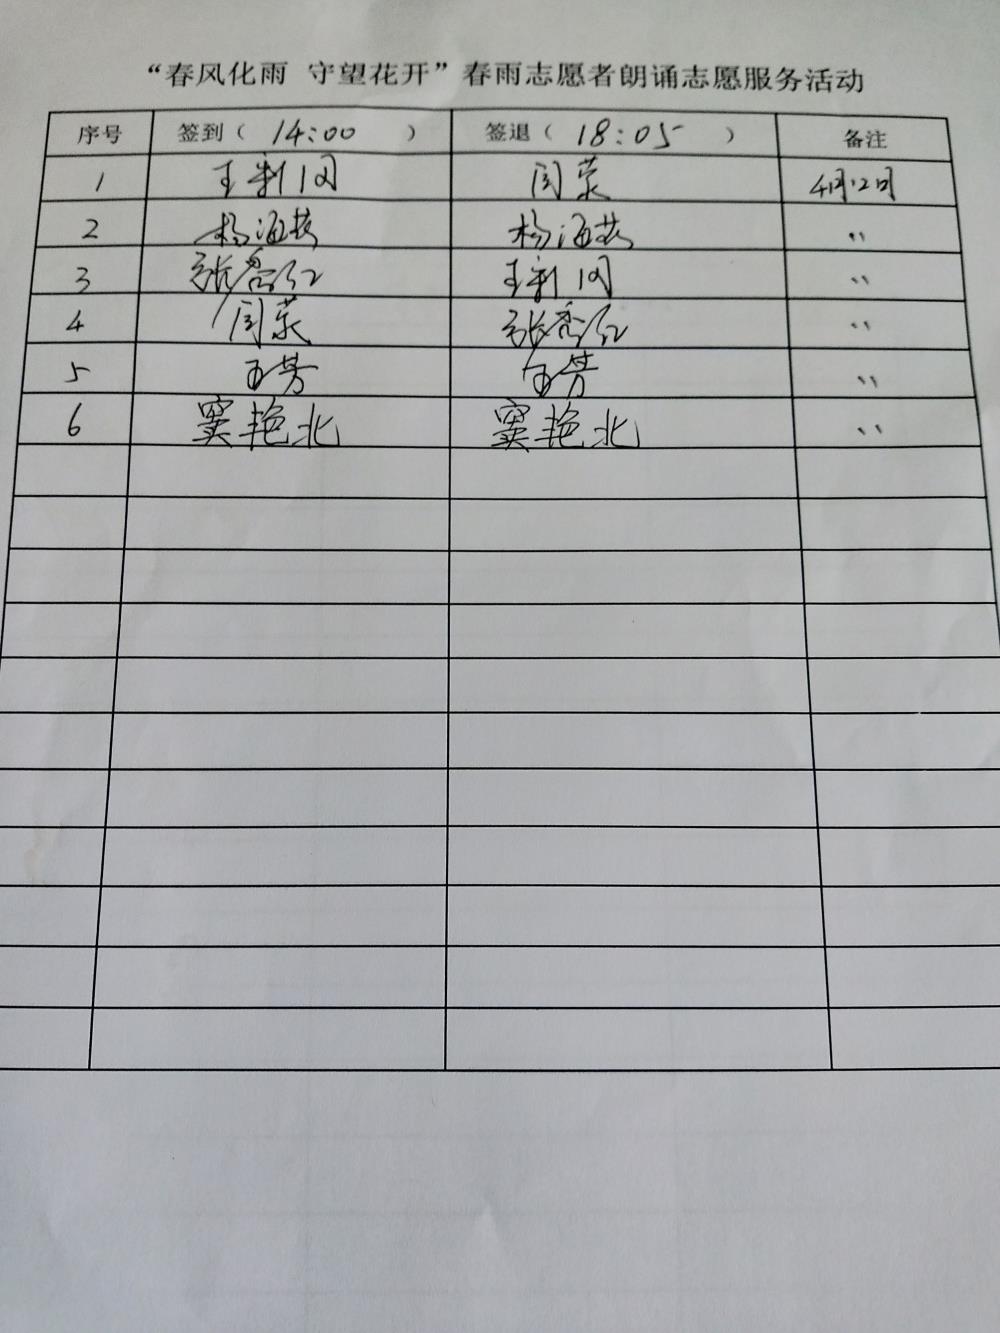 “春风化雨 守望花开”春雨志愿者朗诵志愿服务活动
序号 签到（ 14:00 ） 签退（ 18:05 ） 备注
1 王 闫荣 4月12日
2 杨海燕 杨海燕 〃
3 张 王 〃
4 闫荣 张 〃
5 芳 芳 〃
6 窦艳北 窦艳北 〃